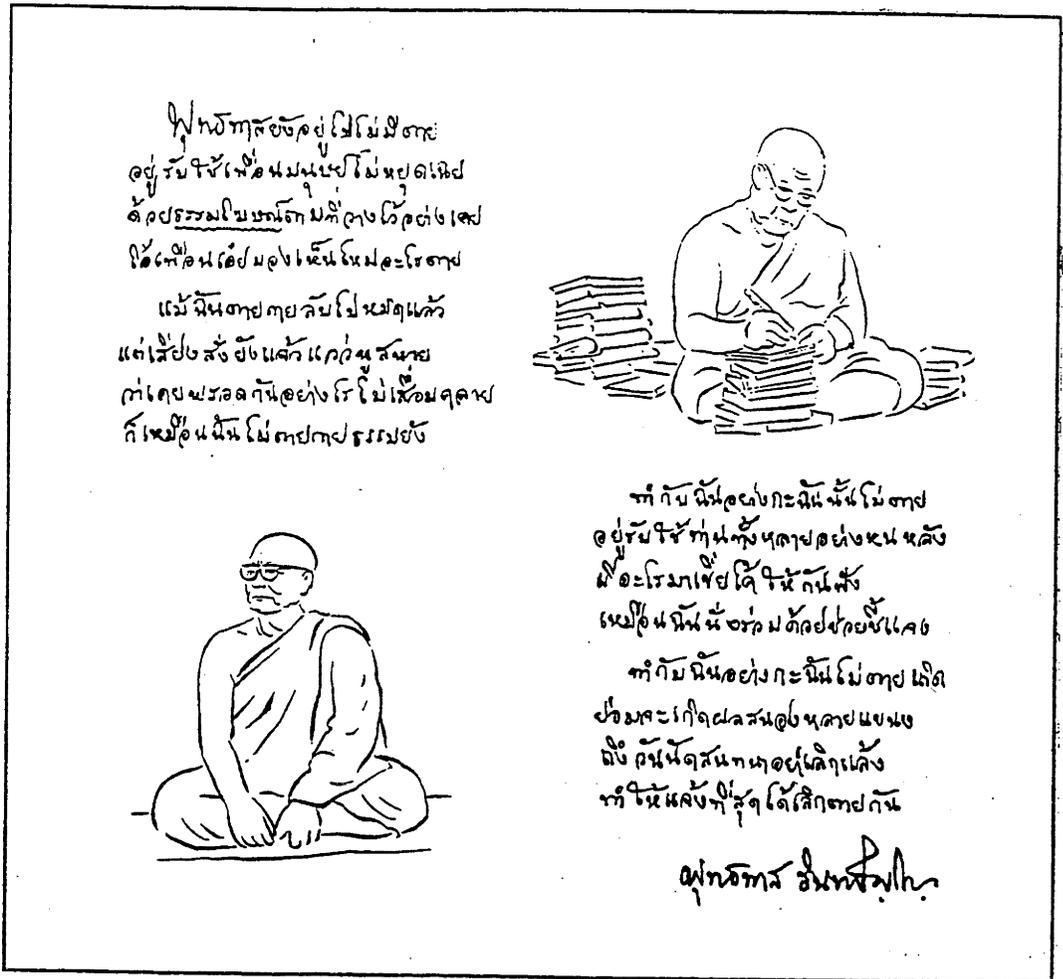 พุทธทาสยังอยู่ไปไม่มีตาย
อยู่รับใช้เพื่อนมนุษย์ไม่หยุดเฉย
ด้วยธรรมโฆษณ์ตามที่วางไว้อย่างเคย
โอ้เพื่อนเอ๋ยมองเห็นไหมอะไรตาย
แม้ฉันตายกายลับไปหมดแล้ว
แต่เสียงสั่งยังแจ้วแว่วหูสหาย
ว่าเคยพลอดกันอย่างไรไม่เสื่อมคลาย
ก็เหมือนฉันไม่ตายกายธรรมยัง
ทำกับฉันอย่างกะฉันนั้นไม่ตาย
อยู่รับใช้ท่านทั้งหลายอย่างหนหลัง
มีอะไรมาเขี่ยไค้ให้กันฟัง
เหมือนฉันนั่งร่วมด้วยช่วยชี้แจง
ทำกับฉันอย่างกะฉันไม่ตายเถิด
ย่อมจะเกิดผลสนองหลายแขนง
ถึงวันนัดสนทนาอย่าเลิกแล้ง
ทำให้แจ้งที่สุดได้เลิกตายกัน
พุทธทาส อินทปัญโญ